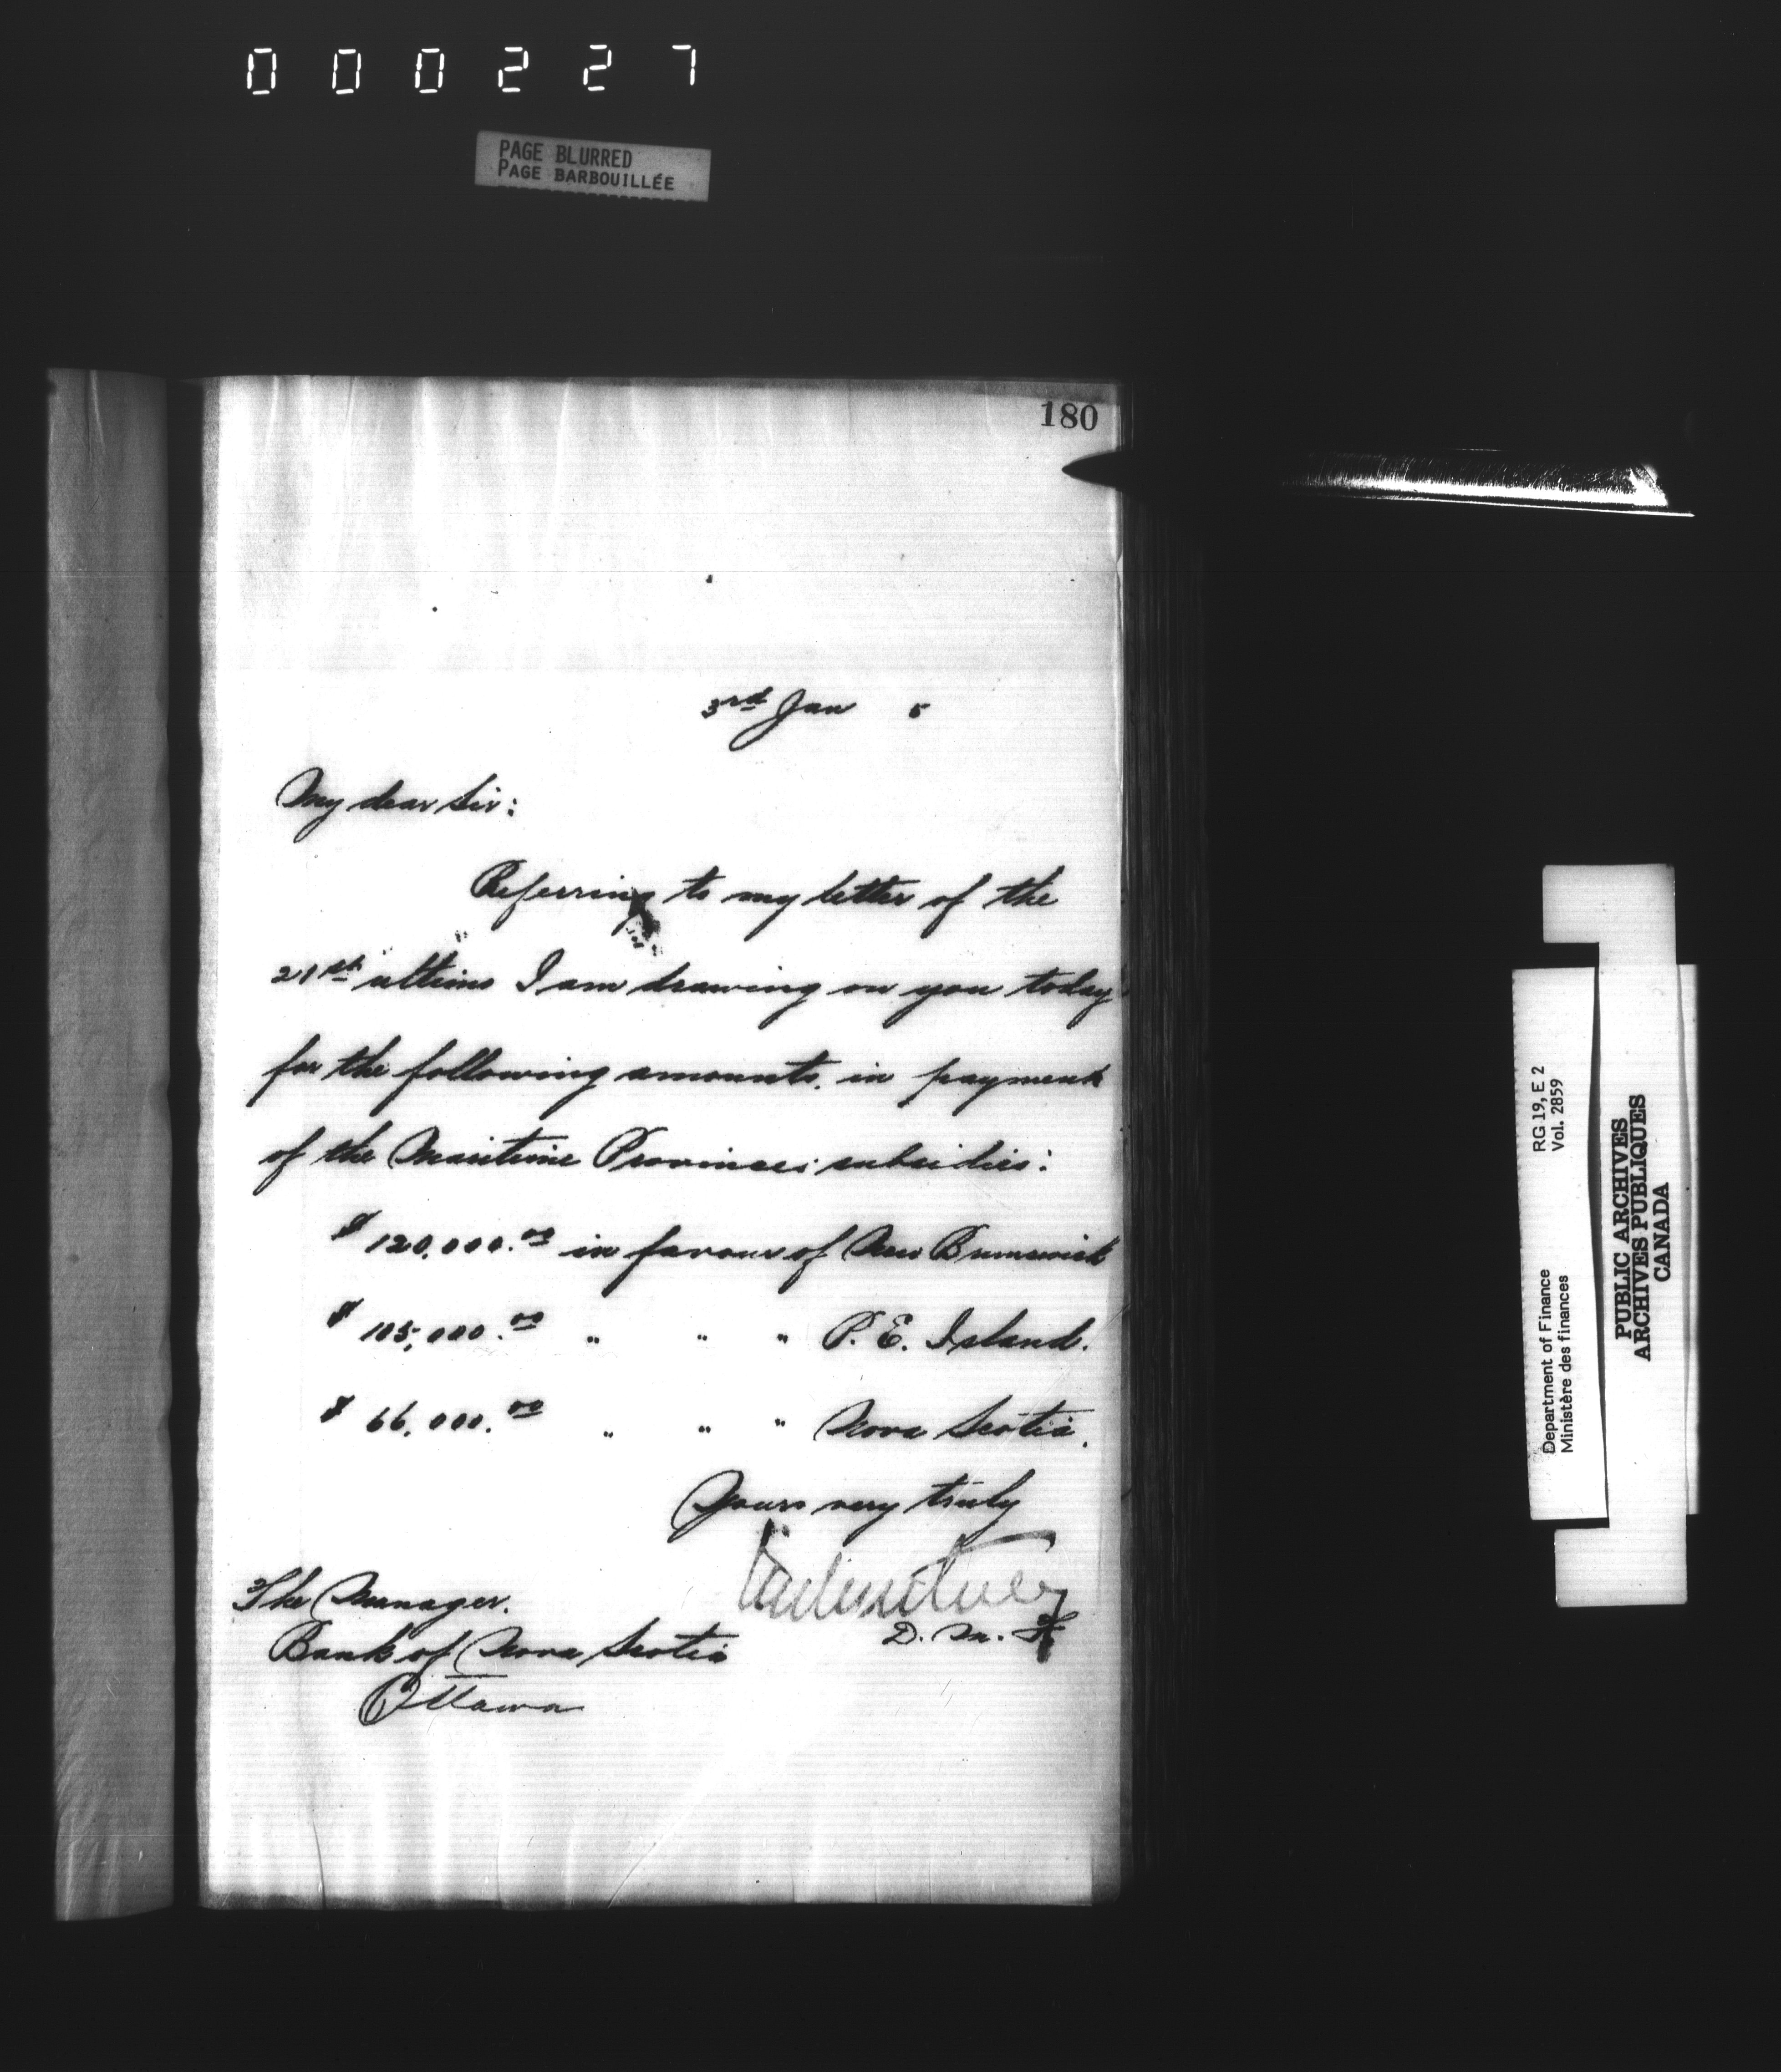 000227
PAGE BLURRED
PAGE BARBOUILLÉE
180
3rd Jan 5
My dear Sir:
Referring to my letter of the
21st ultimo I am drawing on you today
for the following amounts. in payment
of the Maritime Provinces subsidies:
$120,000.00 in favour of New Brunswick
$105,000.00 " " " P. E. Island.
$66,000.00 " " " Nova Scotia.
Yours very truly
D. M. F
The Manager.
Bank of Nova Scotia
Ottawa
Department of Finance RG 19, E 2
Ministère des finances Vol. 2859
PUBLIC ARCHIVES
ARCHIVES PUBLIQUES
CANADA